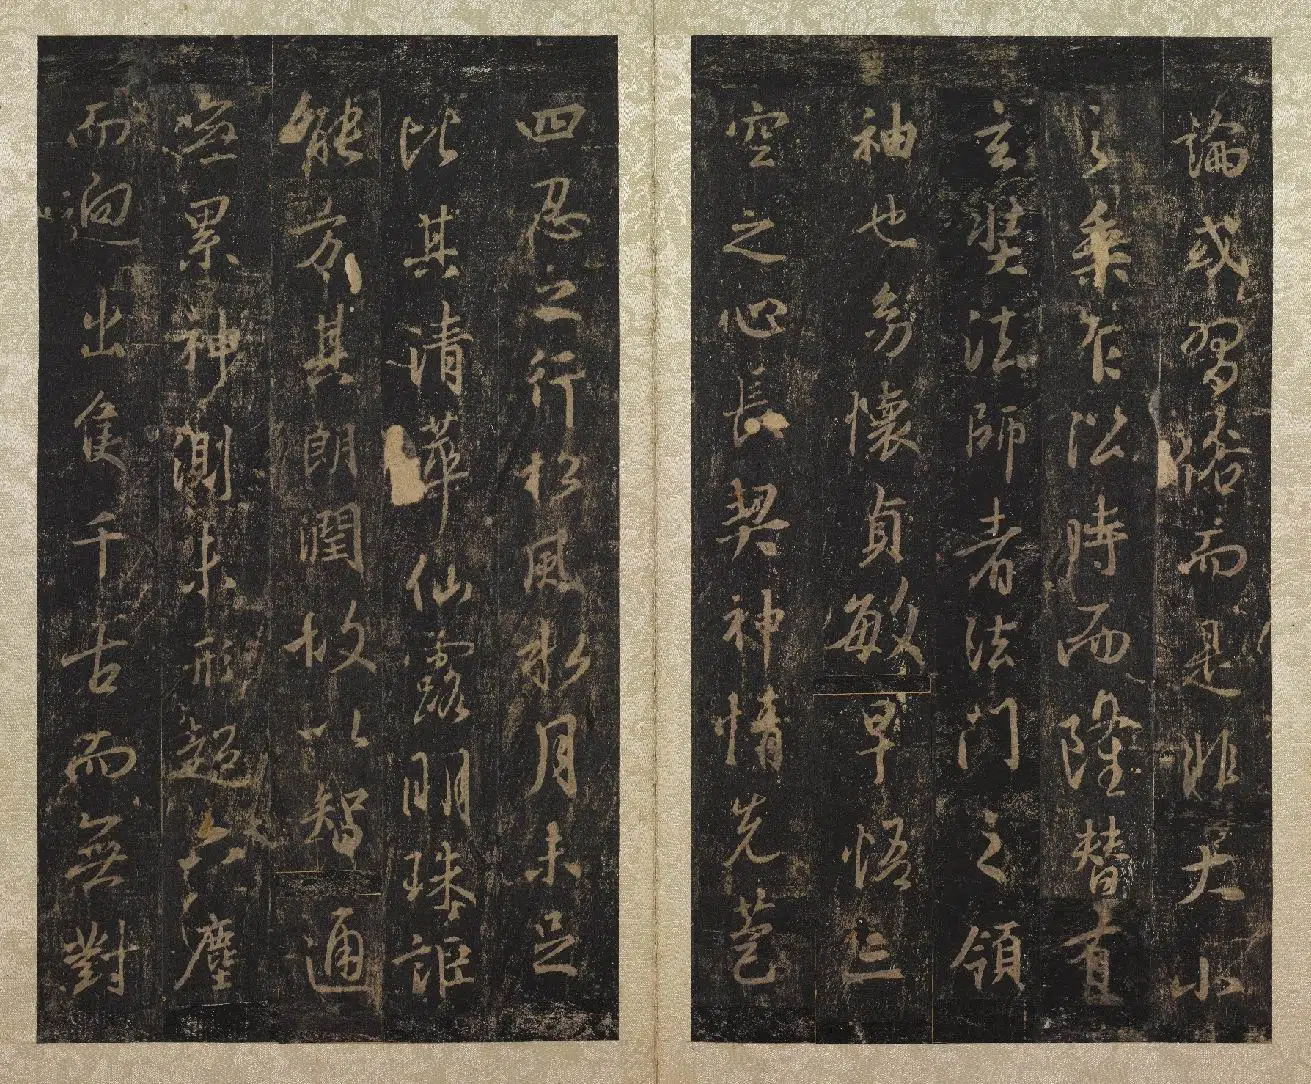 論或習俗而是非大小
之乘乍沿時而隆替有
玄奘法師者法門之領
袖也幼懷貞敏早悟三
空之心長契神情先苞
四忍之行松風水月未足
比其清華仙露明珠詎
能方其朗潤故以智通
無累神測未形超六塵
而迥出隻千古而無對